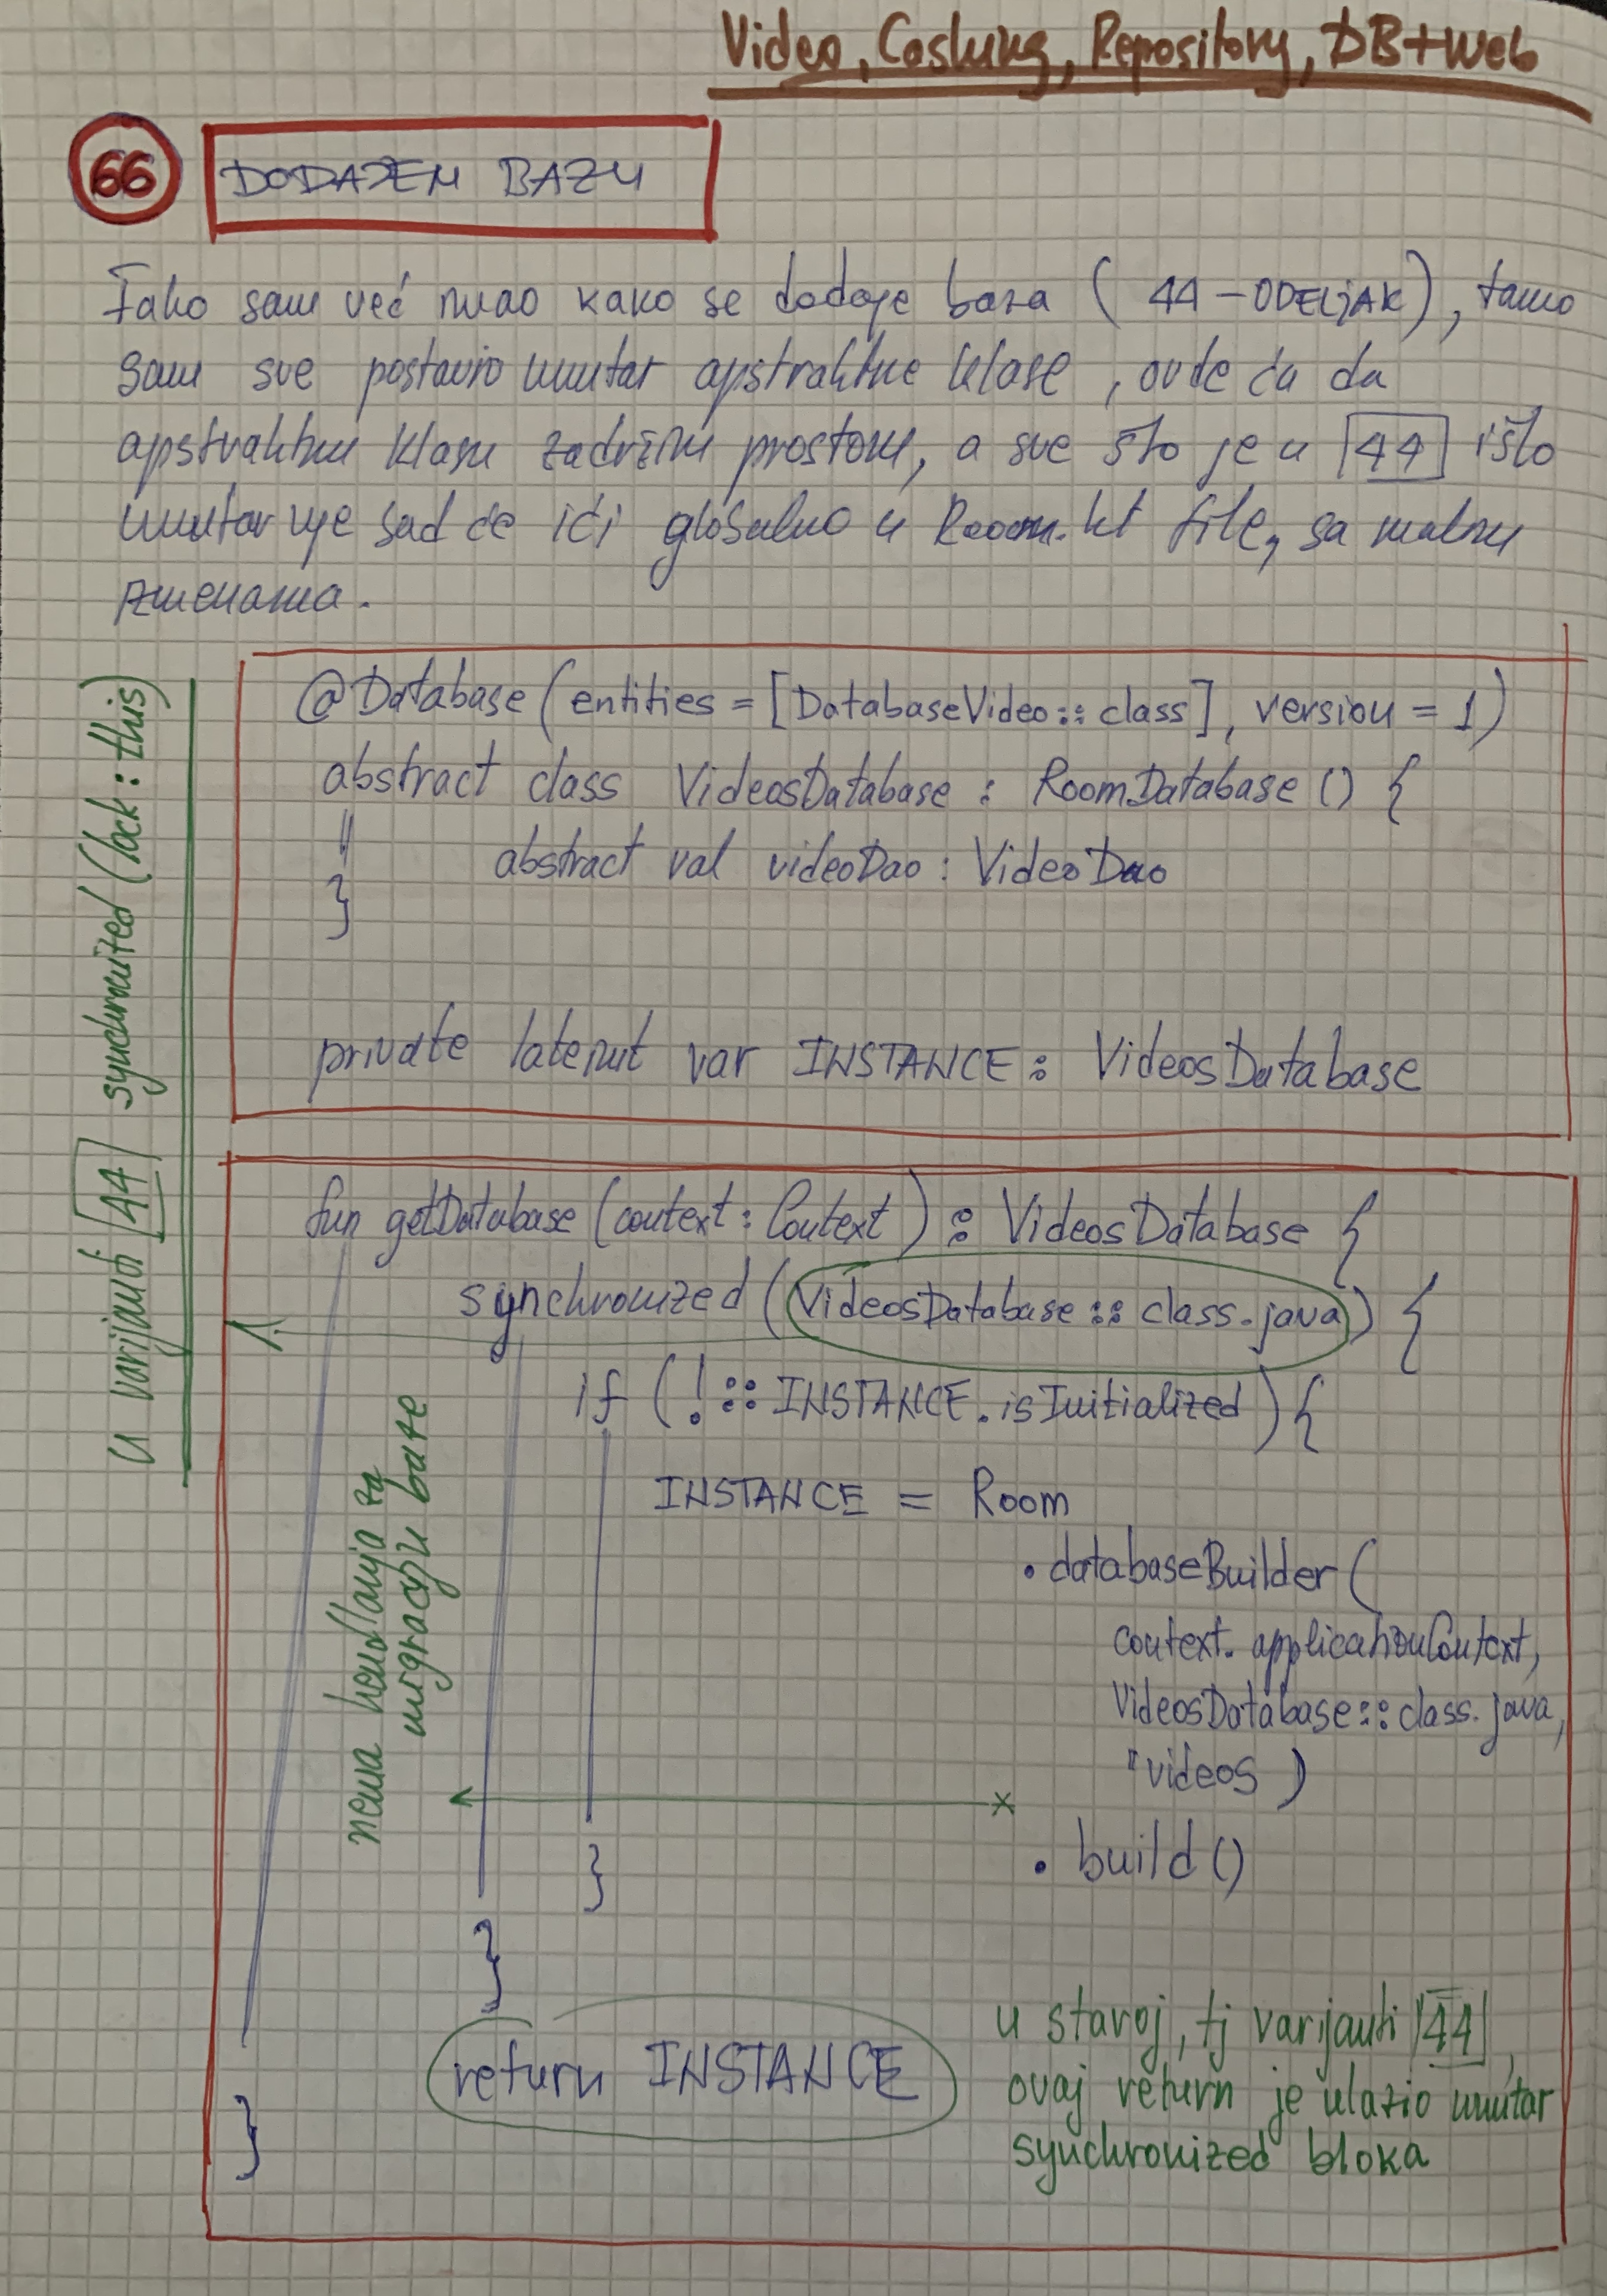 Video, Cashing, Repository, DB+Web
66 DODAJEM BAZU
Iako sam već imao kako se dodaje baza ( 44 - ODELJAK ), tamo
sam sve postavio unutar apstraktne klase , ovde ću da
apstraktnu klasu zadržim prostom, a sve što je u 44 išlo
unutar nje sad će ići globalno u Room.kt file, sa malim
izmenama.
@Database (entities = [DatabaseVideo::class], version = 1)
abstract class VideosDatabase : RoomDatabase () {
abstract val videoDao : VideoDao
}
private lateinit var INSTANCE : VideosDatabase
u varijanti 44 synchronized (lock : this)
fun getDatabase (context : Context ) : VideosDatabase {
synchronized (VideosDatabase :: class.java) {
if ( ! :: INSTANCE . isInitialized ) {
INSTANCE = Room
. databaseBuilder (
context. applicationContext,
VideosDatabase :: class. java,
"videos )
. build ()
}
}
return INSTANCE
}
nema hendlanja za
migraciju baze
u staroj, tj varijanti 44 ,
ovaj return je ulazio unutar
synchronized bloka